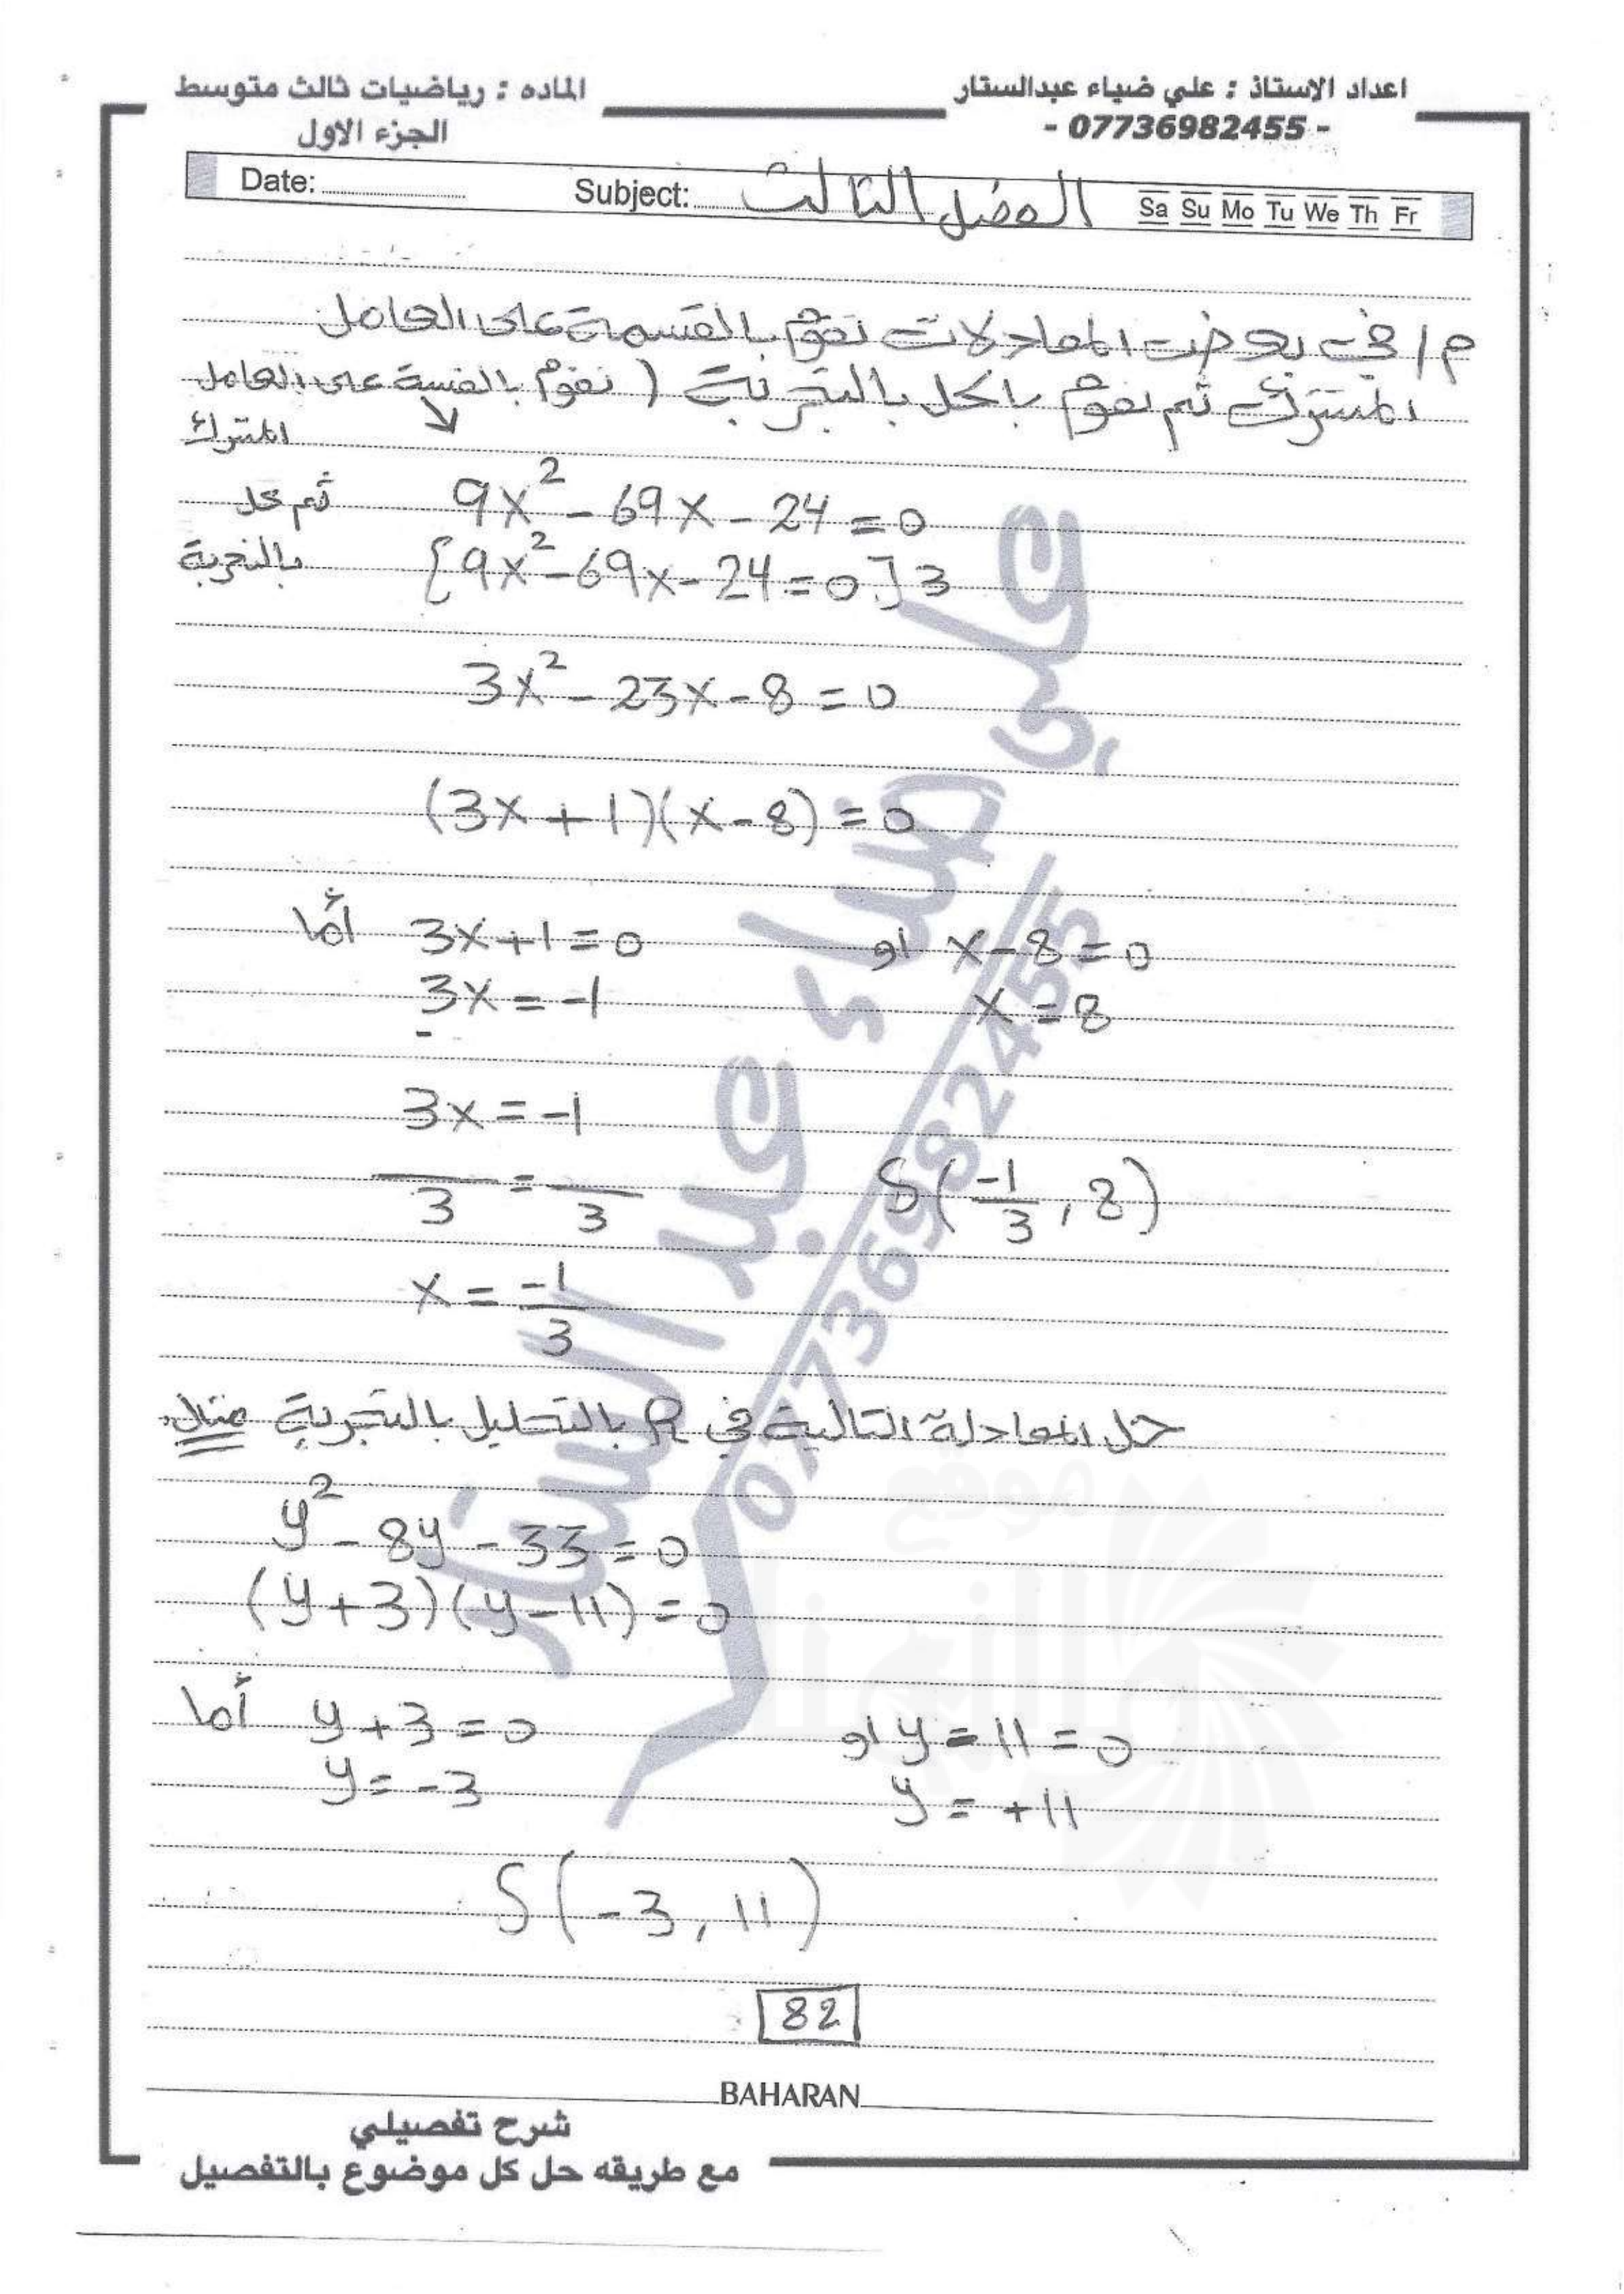 اعداد الاستاذ : علي ضياء عبدالستار
- 07736982455 -
الماده : رياضيات ثالث متوسط
الجزء الاول
Date: Subject: الفصل الثالث Sa Su Mo Tu We Th Fr
م/ في بعض المعادلات نقوم بالقسمة على العامل
المشترك ثم نقوم بالحل بالتجربة ( نقوم بالقسمة على العامل
المشترك
ثم حل
بالتجربة
9x² - 69x - 24 = 0
[9x² - 69x - 24 = 0] 3
3x² - 23x - 8 = 0
(3x + 1)(x - 8) = 0
أما 3x + 1 = 0 او x - 8 = 0
3x = -1 x = 8
3x = -1
3 = 3 S(-1/3 , 8)
x = -1/3
حل المعادلة التالية في R بالتحليل بالتجربة مثال
y² - 8y - 33 = 0
(y + 3)(y - 11) = 0
أما y + 3 = 0 او y = 11 = 0
y = -3 y = +11
S(-3 , 11)
82
BAHARAN
شرح تفصيلي
مع طريقه حل كل موضوع بالتفصيل
علي ضياء عبد الستار
07736982455
موقع